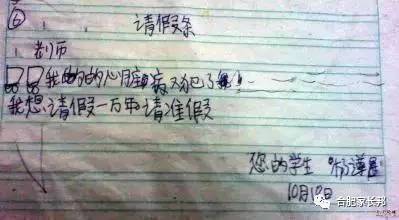 ⑥ 请假条
老师
我的的心脏病又犯了
我想请假一万年请准假
您的学生
10月18日
合肥家长邦